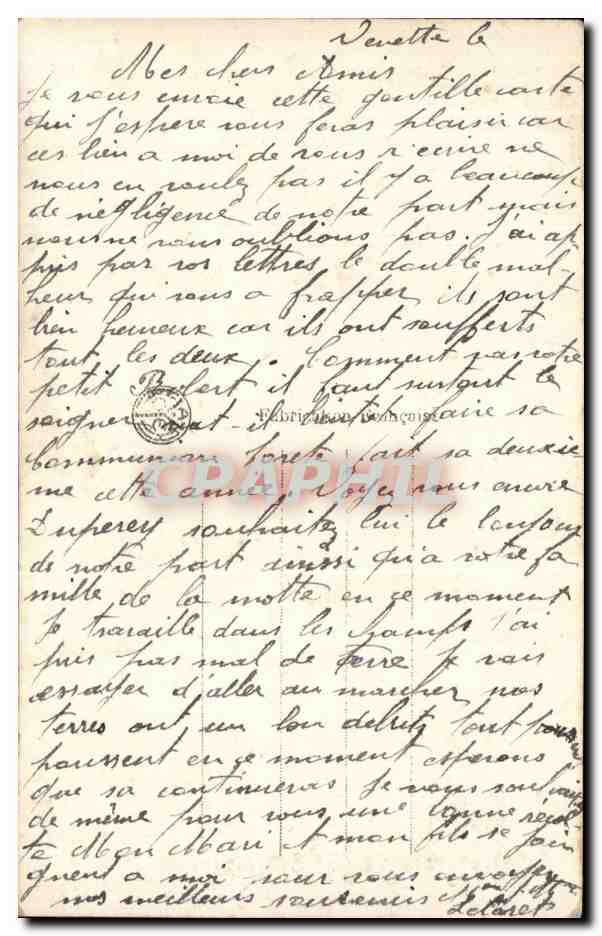 Venette le
Mes chers Amis
Je vous envoie cette gentille carte
qui j'espere vous feras plaisir car
ces bien a moi de vous r'ecrire ne
nous en voulez pas il y a beaucoup
de négligence de notre part mais
nous ne vous oublions pas. J'ai ap-
pris par vos lettres le double mal-
heur qui vous a frapper, ils sont
bien heureux car ils ont soufferts
tout les deux. Comment vas votre
petit il faut surtout le
soigner il faire sa
Fabrication Française
Communion fait sa deuxie-
me cette année. Voyez vous encore
Duperey souhaitez lui le bonjour
de notre part ainsi qu'a votre fa
mille de la motte en ce moment
Je travaille dans les champs j'ai
pris pas mal de Terre Je vais
essayer d'aller au marcher nos
terres ont un bon debris tout
poussent en ce moment esperons
que sa continueras Je vous souhaite
de même pour vous une bonne récol-
te Mon Mari et mon fils se join
quent a moi pour vous envoyer
nos meilleurs souvenirs
CPARAMA